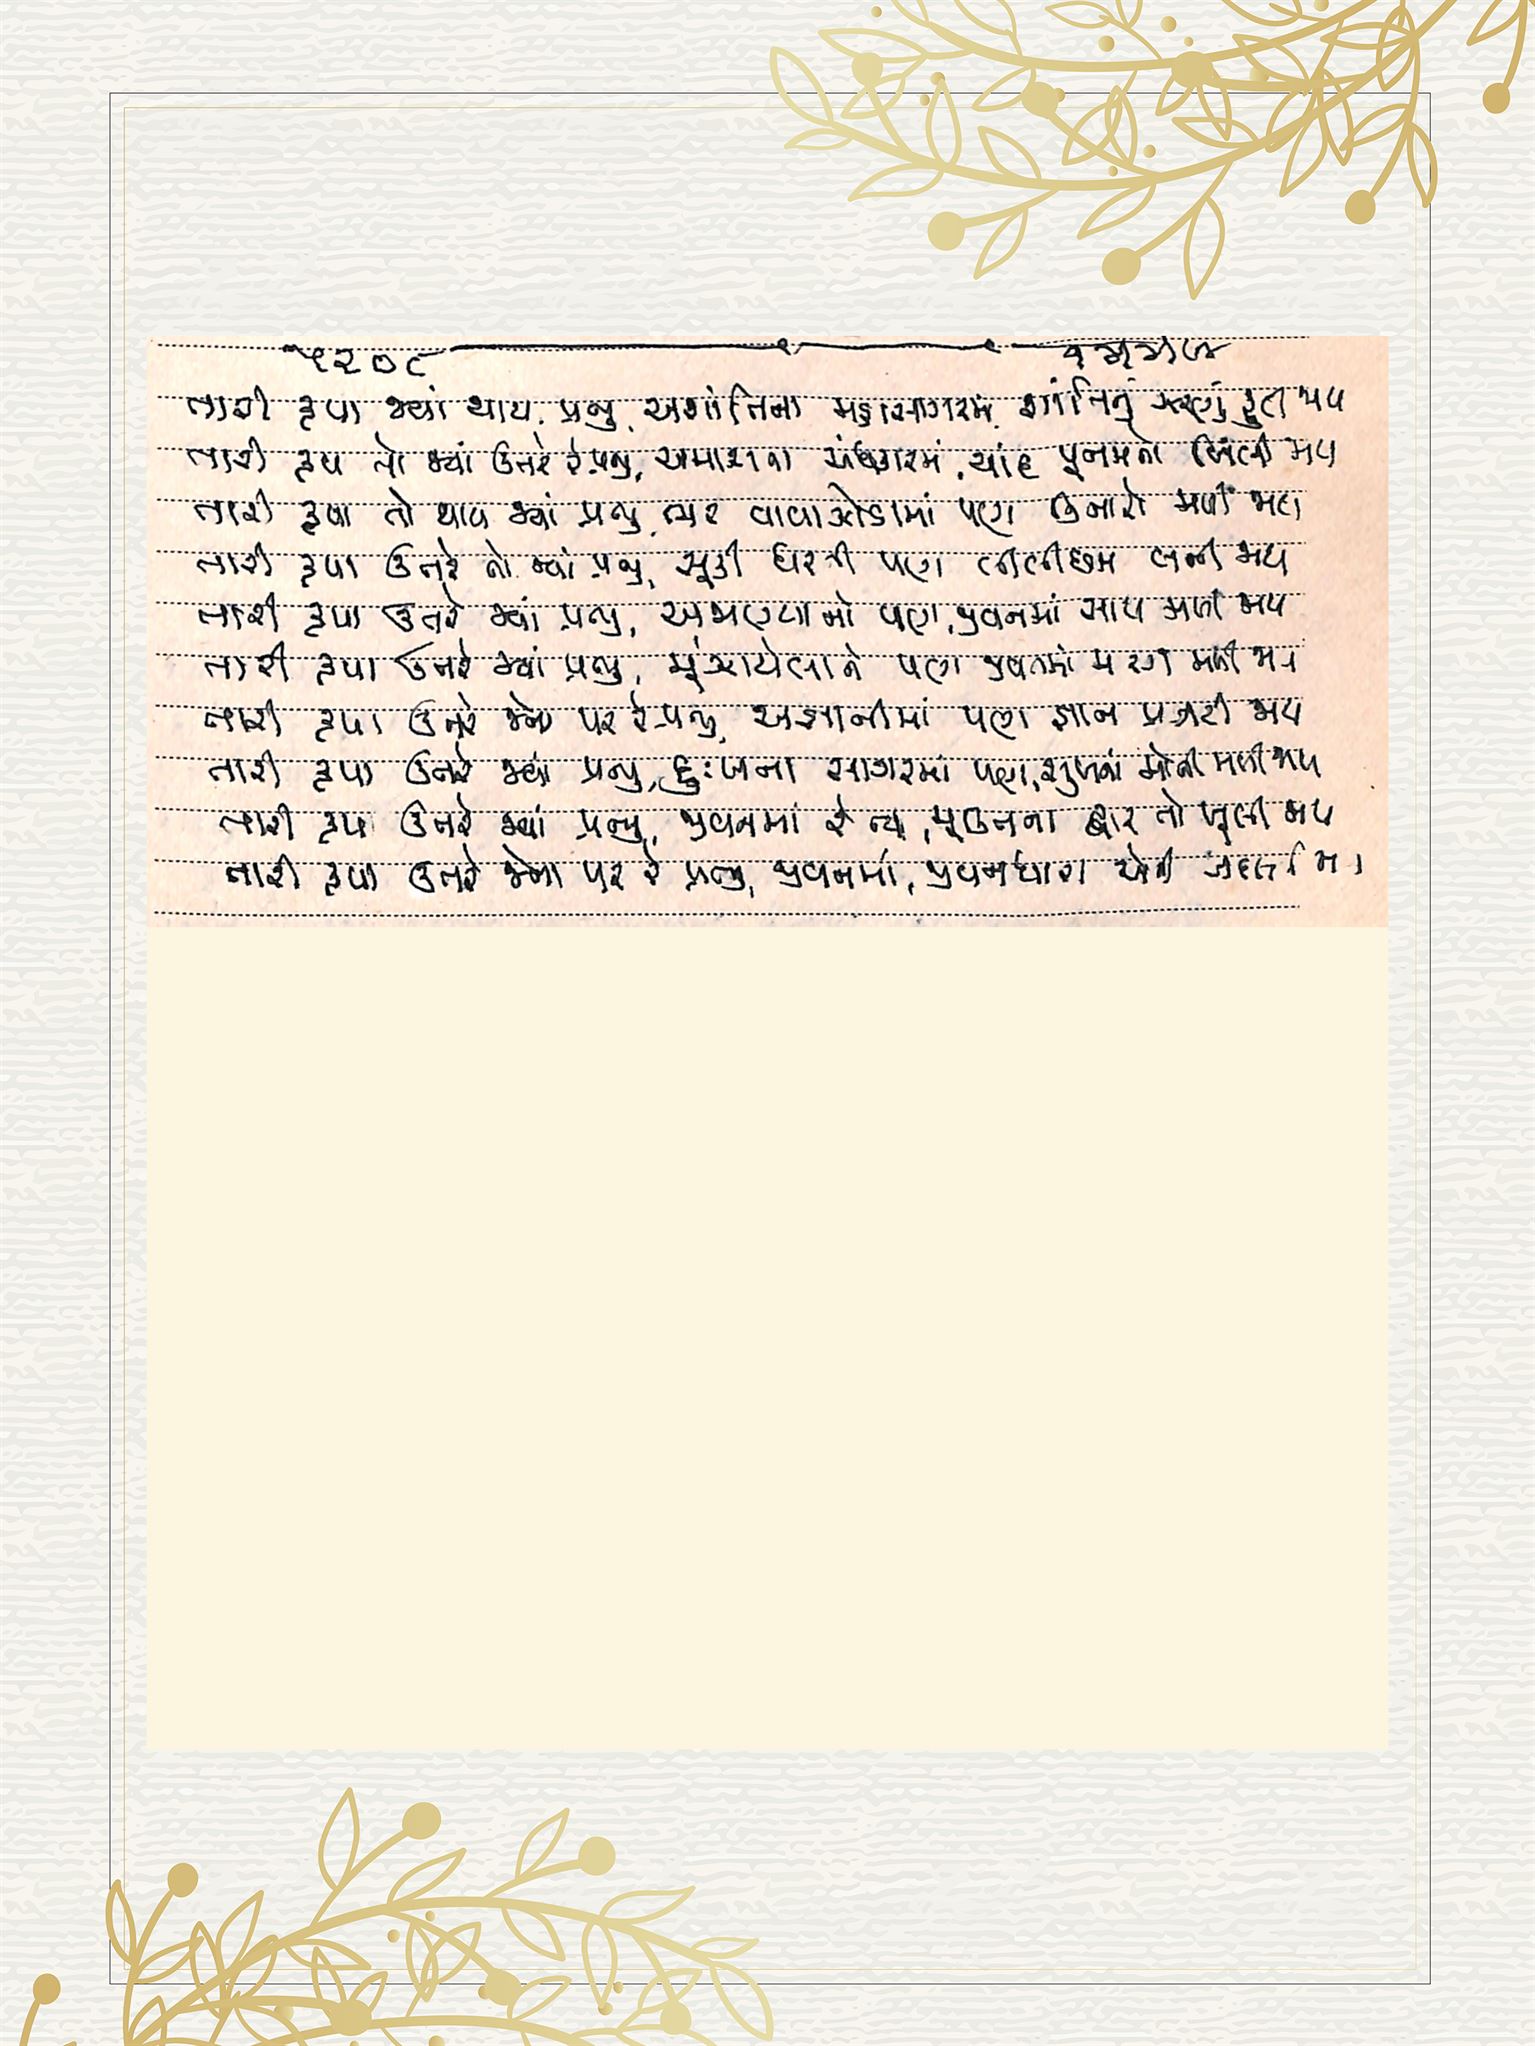 ૫૨૦૯
તારી કૃપા જ્યાં થાય, પ્રભુ, અશાંતિના મહાસાગરમાં, શાંતિનું ઝરણું ફૂટી જાય
તારી કૃપા તો જ્યાં ઉતરે રે પ્રભુ, અમાસના અંધકારમાં, ચાંદ પૂનમનો ખિલી જાય
તારી કૃપા તો થાય જ્યાં પ્રભુ, ભર વાવાઝોડામાં પણ કિનારો મળી જાય
તારી કૃપા ઉતરે જો જ્યાં પ્રભુ, સૂકી ધરતી પણ લીલીછમ બની જાય
તારી કૃપા ઉતરે જ્યાં પ્રભુ, અજાણ્યાનો પણ, જીવનમાં સાથ મળી જાય
તારી કૃપા ઉતરે જ્યાં પ્રભુ, મૂંઝાયેલાને પણ જીવનમાં મારગ મળી જાય
તારી કૃપા ઉતરે જેના પર રે પ્રભુ, અજ્ઞાનીમાં પણ જ્ઞાન પ્રગટી જાય
તારી કૃપા ઉતરે જ્યાં પ્રભુ, દુઃખના સાગરમાં પણ, સુખનાં મોતી મળી જાય
તારી કૃપા ઉતરે જ્યાં પ્રભુ, જીવનમાં રે ત્યાં, મુક્તિના દ્વાર તો ખૂલી જાય
તારી કૃપા ઉતરે જેના પર રે પ્રભુ, જીવનમાં, જીવનધારા એની બદલાઈ જાય